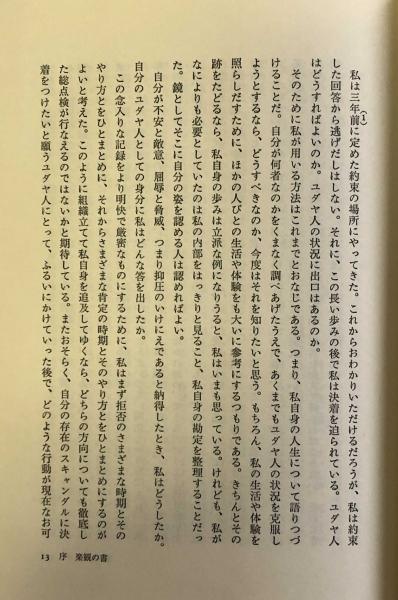 私は三年前に定めた約束の場所にやってきた。これからおわかりいただけるだろうが、私は約束
(1)
した回答から逃げだしはしない。それに、この長い歩みの後で私は決着を迫られている。ユダヤ人
はどうすればよいのか。ユダヤ人の状況に出口はあるのか。
そのために私が用いる方法はこれまでとおなじである。つまり、私自身の人生について語りつづ
けることだ。自分が何者なのかをくまなく調べあげたうえで、あくまでもユダヤ人の状況を克服し
ようとするなら、どうすべきなのか、今度はそれを知りたいと思う。もちろん、私の生活や体験を
照らしだすために、ほかの人びとの生活や体験をも大いに参考にするつもりである。きちんとその
跡をたどるなら、私自身の歩みは立派な例になりうると、私はいまも思っている。けれども、私が
なによりも必要としていたのは私の内部をはっきりと見ること、私自身の勘定を整理することだっ
た。鏡としてそこに自分の姿を認める人は認めればよい。
自分が不安と敵意、屈辱と脅威、つまり抑圧のいけにえであると納得したとき、私はどうしたか。
自分のユダヤ人としての身分に私はどんな答を出したか。
この念入りな記録をより明快で厳密なものにするために、私はまず拒否のさまざまな時期とその
やり方とをひとまとめに、それからさまざまな肯定の時期とそのやり方とをひとまとめにするのが
よいと考えた。このように組織立てて私自身を追及してゆくなら、どちらの方向についても徹底し
た総点検が行なえるのではないかと期待している。またおそらく、自分の存在のスキャンダルに決
着をつけたいと願うユダヤ人にとって、ふるいにかけていった後で、どのような行動が現在なお可
13 序 楽観の書